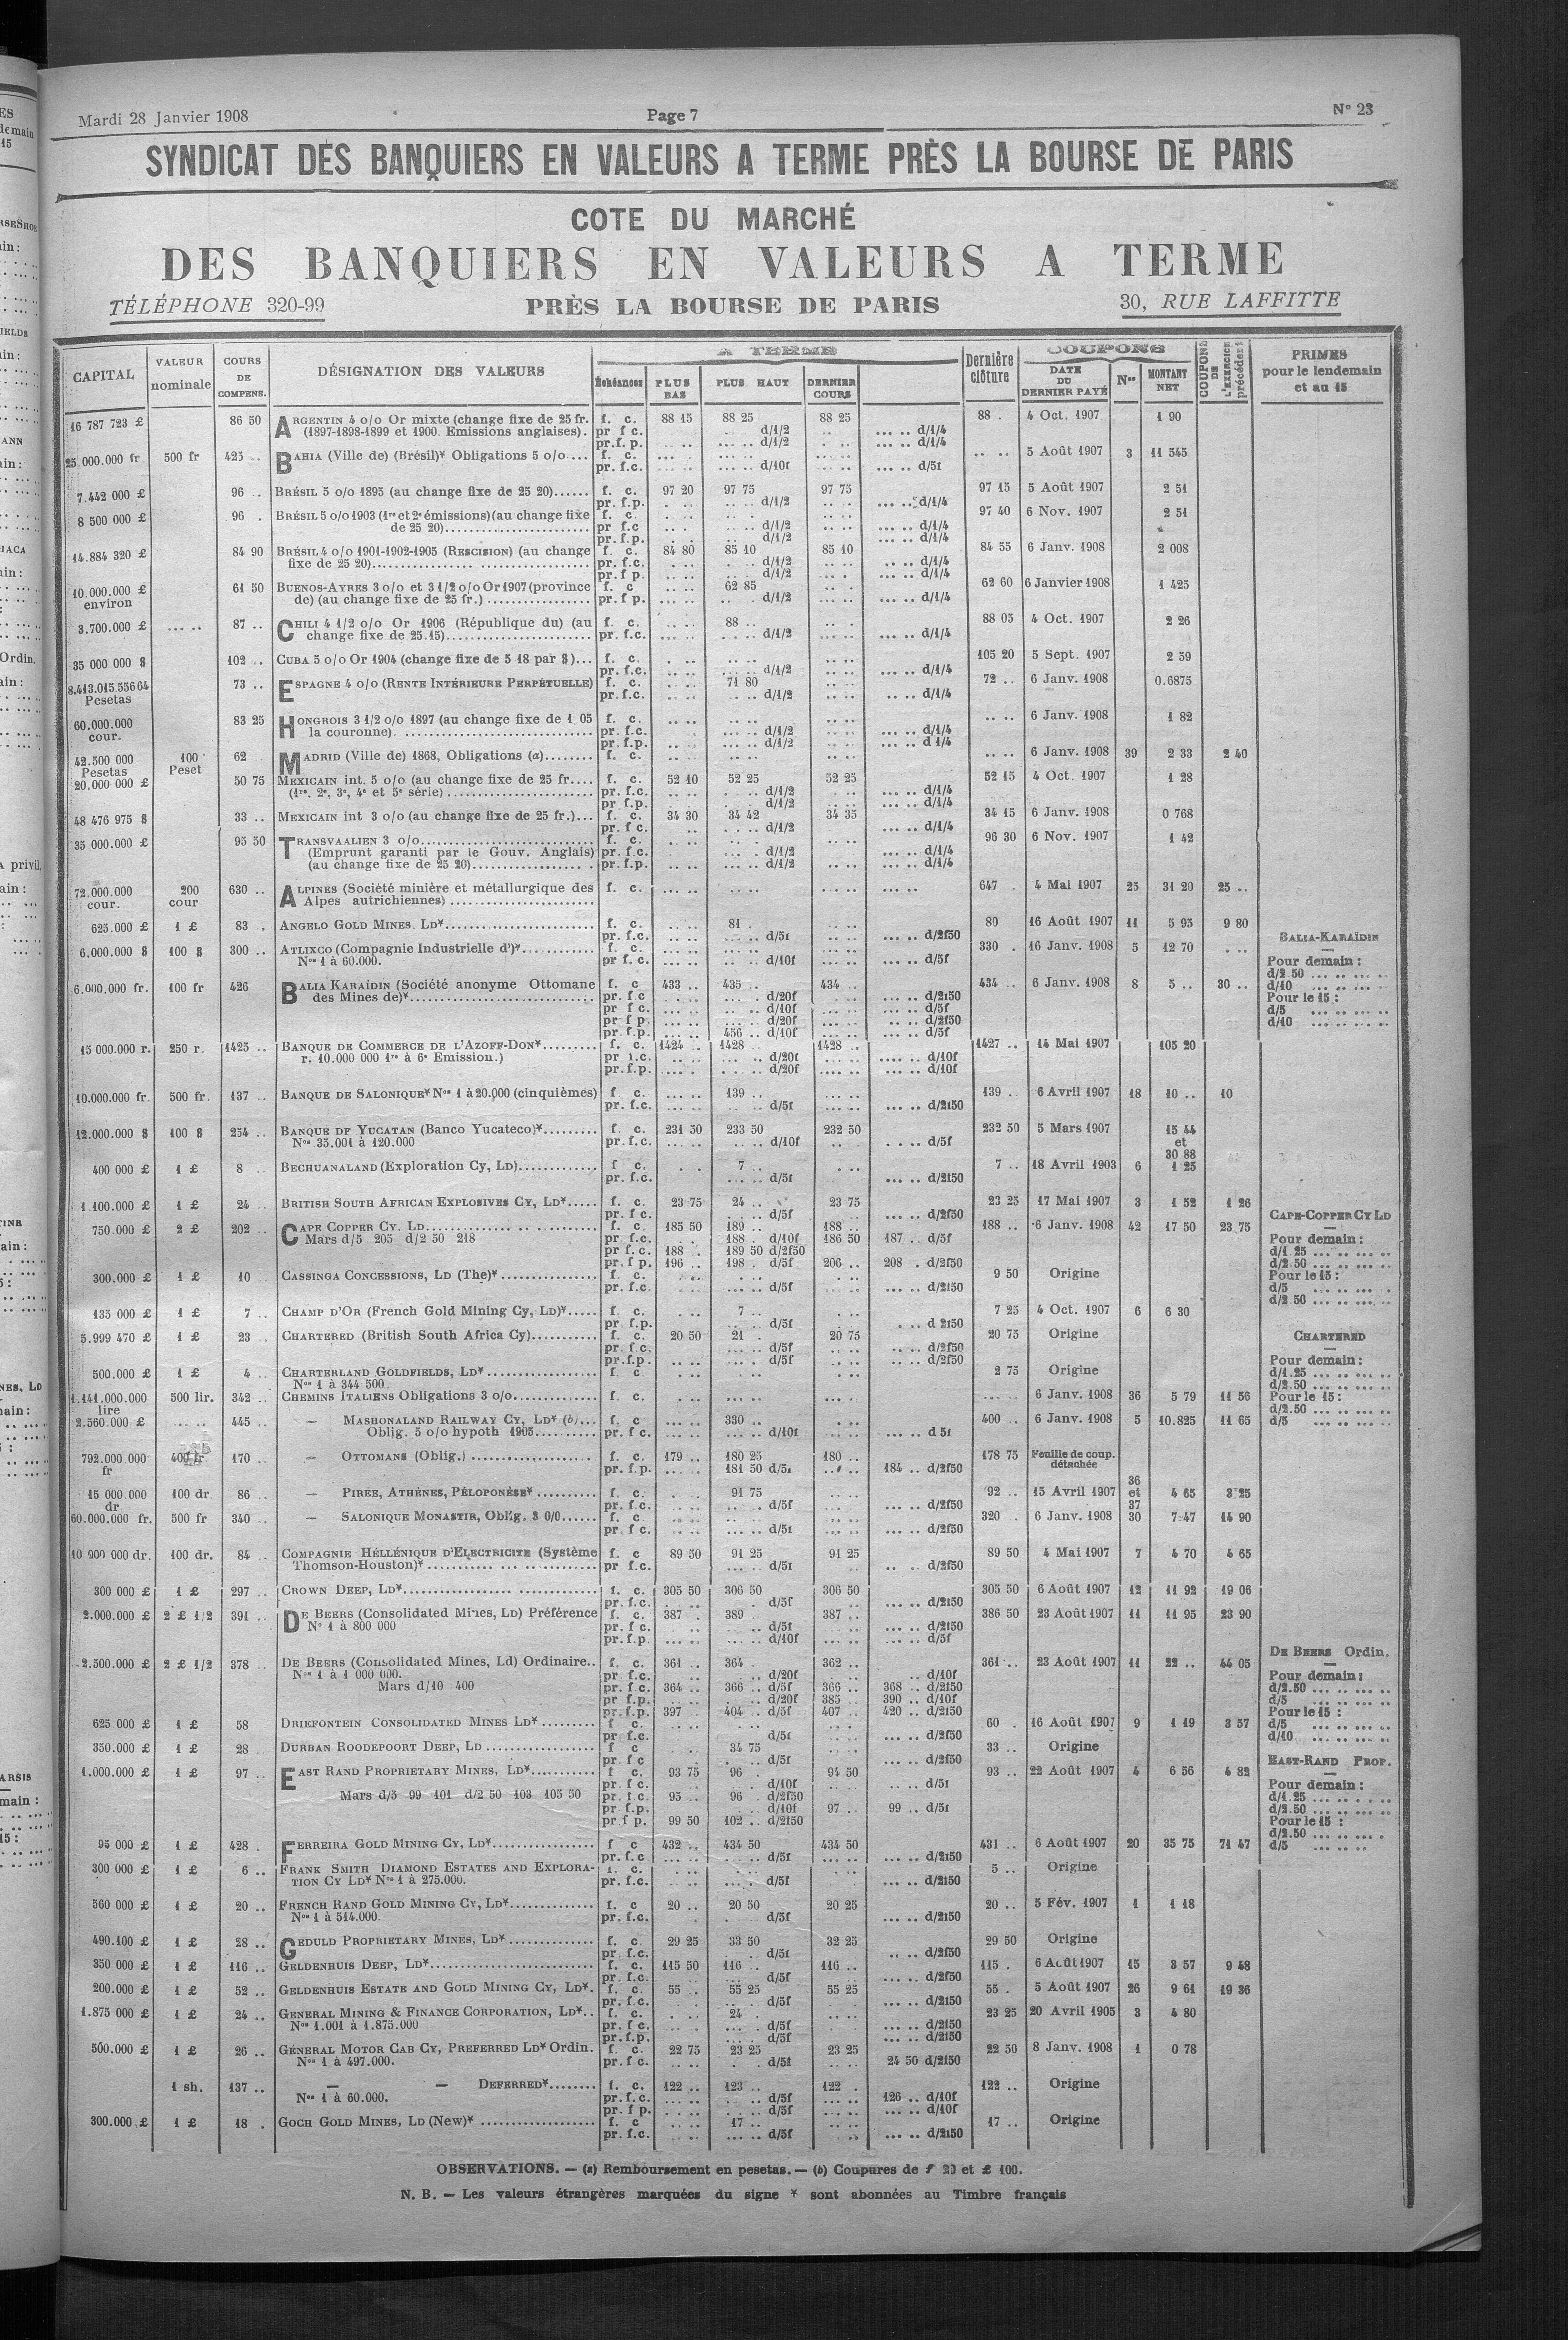 Mardi 28 Janvier 1908 Page 7 N° 23
SYNDICAT DES BANQUIERS EN VALEURS A TERME PRÈS LA BOURSE DE PARIS
COTE DU MARCHÉ
DES BANQUIERS EN VALEURS A TERME
TÉLÉPHONE 320-99 PRÈS LA BOURSE DE PARIS 30, RUE LAFFITTE
CAPITAL VALEUR nominale COURS DE COMPENS. DÉSIGNATION DES VALEURS A TERME Échéances PLUS BAS PLUS HAUT DERNIER COURS Dernière clôture COUPONS DATE DU DERNIER PAYÉ Nos MONTANT NET COUPONS DE L'EXERCICE précédent PRIMES pour le lendemain et au 15
16 787 723 £ 86 50 ARGENTIN 4 o/o Or mixte (change fixe de 25 fr. f. c. 88 15 88 25 88 25 88 . 4 Oct. 1907 1 90
(1897-1898-1899 et 1900. Emissions anglaises). pr f c. d/1/2 d/1/4
pr.f. p. d/1/2 d/1/4
25.000.000 fr 500 fr 425 .. BAHIA (Ville de) (Brésil)* Obligations 5 o/o ... f. c. 5 Août 1907 3 11 545
pr. f.c. d/10f d/5f
7.442 000 £ 96 .. BRÉSIL 5 o/o 1895 (au change fixe de 25 20)...... f. c. 97 20 97 75 97 75 97 15 5 Août 1907 2 51
pr. f.p. d/1/2 d/1/4
8 500 000 £ 96 . BRÉSIL 5 o/o 1903 (1re et 2e émissions) (au change fixe f. c. 97 40 6 Nov. 1907 2 51
de 25 20) pr f.c d/1/2 d/1/4
pr. f.p. d/1/2 d/1/4
14.884 320 £ 84 90 BRÉSIL 4 o/o 1901-1902-1905 (RESCISION) (au change f. c. 84 80 85 10 85 10 84 55 6 Janv. 1908 2 008
fixe de 25 20) pr. f.c. d/1/2 d/1/4
pr. f p. d/1/2 d/1/4
10.000.000 £ environ 61 50 BUENOS-AYRES 3 o/o et 3 1/2 o/o Or 1907 (province f. c 62 85 62 60 6 Janvier 1908 1 425
de) (au change fixe de 25 fr.) pr. f p. d/1/2 d/1/4
3.700.000 £ 87 .. CHILI 4 1/2 o/o Or 1906 (République du) (au f. c. 88 .. 88 05 4 Oct. 1907 2 26
change fixe de 25.15) pr. f.c. d/1/2 d/1/4
35 000 000 $ 102 .. CUBA 5 o/o Or 1904 (change fixe de 5 18 par $)... f. c. 105 20 5 Sept. 1907 2 59
pr. f.c. d/1/2 d/1/4
8.413.015 556 64 Pesetas 73 .. ESPAGNE 4 o/o (RENTE INTÉRIEURE PERPÉTUELLE) f. c. 71 80 72 .. 6 Janv. 1908 0.6875
pr. f.c. d/1/2 d/1/4
60.000.000 cour. 83 25 HONGROIS 3 1/2 o/o 1897 (au change fixe de 1 05 f. c. 6 Janv. 1908 1 82
la couronne) pr. f.c. d/1/2 d/1/4
pr. f.p. d/1/2 d 1/4
42.500 000 Pesetas 100 Peset 62 MADRID (Ville de) 1868, Obligations (a)........ f. c. 6 Janv. 1908 39 2 33 2 40
20.000 000 £ 50 75 MEXICAIN int. 5 o/o (au change fixe de 25 fr.... f. c. 52 10 52 25 52 25 52 15 4 Oct. 1907 1 28
(1re, 2e, 3e, 4e et 5e série) pr. f.c. d/1/2 d/1/4
pr f.p. d/1/2 d/1/4
48 476 975 $ 33 .. MEXICAIN int 3 o/o (au change fixe de 25 fr.)... f. c. 34 30 34 42 34 35 34 15 6 Janv. 1908 0 768
pr. f c. d/1/2 d/1/4
35 000.000 £ 95 50 TRANSVAALIEN 3 o/o f. c. 96 30 6 Nov. 1907 1 42
(Emprunt garanti par le Gouv. Anglais) pr. f.c. d/1/2 d/1/4
(au change fixe de 25 20) pr. f.p. d/1/2 d/1/4
72.000.000 cour. 200 cour 630 .. ALPINES (Société minière et métallurgique des f. c. 647 4 Mai 1907 25 31 20 25 ..
Alpes autrichiennes)
625.000 £ 1 £ 83 . ANGELO GOLD MINES. LD* f. c. 81 . 80 16 Août 1907 11 5 95 9 80
pr. f.c. d/5f d/2f50
6.000.000 $ 100 $ 300 .. ATLIXCO (Compagnie Industrielle d')* f. c. 330 . 16 Janv. 1908 5 12 70
Nos 1 à 60.000. pr f. c. d/10f d/5f
6.000.000 fr. 100 fr 426 BALIA KARAÏDIN (Société anonyme Ottomane f. c 433 .. 435 .. 434 .. 434 .. 6 Janv. 1908 8 5 .. 30 ..
des Mines de)* pr. f c d/20f d/2f50
pr f c. d/10f d/5f
pr f p. d/20f d/2f50
pr. f.p. 456 .. d/10f d/5f
BALIA-KARAÏDIN
Pour demain :
d/2 50
d/10
Pour le 15 :
d/5
d/10
15 000.000 r. 250 r. 1425 .. BANQUE DE COMMERCE DE L'AZOFF-DON* f. c. 1424 .. 1428 .. 1428 .. 1427 .. 14 Mai 1907 105 20
r. 10.000 000 1re à 6e Emission.) pr f.c. d/20f d/10f
pr. f.p. d/20f d/10f
10.000.000 fr. 500 fr. 137 .. BANQUE DE SALONIQUE* Nos 1 à 20.000 (cinquièmes) f c. 139 .. 139 . 6 Avril 1907 18 10 .. 10
pr. f.c. d/5f d/2f50
12.000.000 $ 100 $ 254 .. BANQUE DE YUCATAN (Banco Yucateco)* f. c. 231 50 233 50 232 50 232 50 5 Mars 1907 15 44 et 30 88
Nos 35.001 à 120.000 pr. f.c. d/10f d/5f
400 000 £ 1 £ 8 .. BECHUANALAND (Exploration Cy, LD) f c. 7 .. 7 .. 18 Avril 1903 6 1 25
pr. f.c. d/5f d/2f50
1.100.000 £ 1 £ 24 .. BRITISH SOUTH AFRICAN EXPLOSIVES CY, LD* f. c. 23 75 24 .. 23 75 23 25 17 Mai 1907 3 1 52 1 26
pr. f c. d/5f d/2f50
750.000 £ 2 £ 202 .. CAPE COPPER CY. LD f. c. 185 50 189 .. 188 .. 188 .. 6 Janv. 1908 42 17 50 23 75
Mars d/5 205 d/2 50 218 pr. f.c. 188 . d/10f 186 50 187 .. d/5f
pr f. c. 188 . 189 50 d/2f50
pr. f p. 196 .. 198 . d/5f 206 .. 208 . d/2f50
CAPE-COPPER CY LD
Pour demain :
d/1 25
d/2 50
Pour le 15 :
d/5
d/2 50
300.000 £ 1 £ 10 CASSINGA CONCESSIONS, LD (The)* f. c. 9 50 Origine
pr. f.c. d/5f d/2f50
135 000 £ 1 £ 7 .. CHAMP D'OR (French Gold Mining Cy, LD)* f. c. 7 .. 7 25 4 Oct. 1907 6 6 30
pr. f.p. d/5f d 2f50
5.999 470 £ 1 £ 23 . CHARTERED (British South Africa Cy) f. c. 20 50 21 . 20 75 20 75 Origine
pr. f.c. d/5f d/2f50
pr.f.p. d/5f d/2f50
CHARTERED
Pour demain :
d/1.25
d/2.50
Pour le 15 :
d/2.50
d/5
500.000 £ 1 £ 4 .. CHARTERLAND GOLDFIELDS, LD* f c. 2 75 Origine
Nos 1 à 344 500
1.141.000.000 lire 500 lir. 342 .. CHEMINS ITALIENS Obligations 3 o/o f. c. 6 Janv. 1908 36 5 79 11 56
2.560.000 £ 445 .. — MASHONALAND RAILWAY CY, LD* (b)... f. c 330 .. 400 .. 6 Janv. 1908 5 10.825 11 65
Oblig. 5 o/o hypoth 1905 pr. f c. d/10f d 5f
792.000 000 fr 400 fr 170 .. — OTTOMANS (Oblig.) f. c. 179 .. 180 25 180 .. 178 75 Feuille de coup. détachée
pr. f.p. 181 50 d/5f 184 .. d/2f50
15 000.000 dr 100 dr 86 .. — PIRÉE, ATHÈNES, PÉLOPONÈSE* f. c. 91 75 92 .. 15 Avril 1907 36 et 37 4 65 3 25
pr. f.c. d/5f d/2f50
60.000.000 fr. 500 fr 340 .. — SALONIQUE MONASTIR, Oblig. 3 0/0 f. c 320 . 6 Janv. 1908 30 7 47 14 90
pr. f c. d/5f d/2f50
10 900 000 dr. 100 dr. 84 .. COMPAGNIE HÉLLÉNIQUE D'ELECTRICITE (Système f. c 89 50 91 25 91 25 89 50 4 Mai 1907 7 4 70 4 65
Thomson-Houston)* pr f.c. d/5f d/2f50
300 000 £ 1 £ 297 .. CROWN DEEP, LD* f. c. 305 50 306 50 306 50 305 50 6 Août 1907 12 11 92 19 06
pr. f.c. d/5f d/2f50
2.000.000 £ 2 £ 1/2 391 .. DE BEERS (Consolidated Mines, LD) Préférence f. c. 387 . 389 . 387 .. 386 50 23 Août 1907 11 11 95 23 90
N° 1 à 800 000 pr. f c. d/5f d/2f50
pr. f.p d/10f d/5f
2.500.000 £ 2 £ 1/2 378 .. DE BEERS (Consolidated Mines, Ld) Ordinaire.. f. c. 361 .. 364 . 362 .. 361 .. 23 Août 1907 11 22 .. 44 05
Nos 1 à 1 000 000. pr. f.c. d/20f d/10f
Mars d/10 400 pr. f.c. 364 .. 366 .. d/5f 366 .. 368 .. d/2f50
pr f.p. d/20f 385 .. 390 .. d/10f
pr. f.p. 397 . 404 .. d/5f 407 .. 420 .. d/2f50
DE BEERS Ordin.
Pour demain :
d/2.50
d/5
Pour le 15 :
d/5
d/10
625 000 £ 1 £ 58 DRIEFONTEIN CONSOLIDATED MINES LD* f c. 60 . 16 Août 1907 9 1 19 3 57
pr f.c. d/5f d/2f50
350.000 £ 1 £ 28 .. DURBAN ROODEPOORT DEEP, LD f c 34 75 33 .. Origine
pr f c d/5f d/2f50
1.000.000 £ 1 £ 97 .. EAST RAND PROPRIETARY MINES, LD* f c. 93 75 96 . 94 50 93 .. 22 Août 1907 4 6 56 4 82
pr. f c. d/10f d/5f
Mars d/5 99 101 d/2 50 103 105 50 pr. f.c. 95 .. 96 . d/2f50
pr f.p. d/10f 97 .. 99 .. d/5f
pr f p. 99 50 102 .. d/2f50
EAST-RAND PROP.
Pour demain :
d/1.25
d/2.50
Pour le 15 :
d/2.50
d/5
95 000 £ 1 £ 428 . FERREIRA GOLD MINING CY, LD* f c 432 .. 434 50 434 50 431 .. 6 Août 1907 20 35 75 71 47
pr. f.c d/5f d/2f50
300 000 £ 1 £ 6 .. FRANK SMITH DIAMOND ESTATES AND EXPLORA- f. c. 5 .. Origine
TION CY LD* Nos 1 à 275.000. pr. f.c. d/5f d/2f50
560 000 £ 1 £ 20 .. FRENCH RAND GOLD MINING CY, LD* f. c 20 .. 20 50 20 25 20 .. 5 Fév. 1907 1 1 18
Nos 1 à 514.000 pr. f.c. d/5f d/2f50
490.100 £ 1 £ 28 .. GEDULD PROPRIETARY MINES, LD* f. c. 29 25 33 50 32 25 29 50 Origine
pr. f.c. d/5f d/2f50
350 000 £ 1 £ 116 .. GELDENHUIS DEEP, LD* f. c. 115 50 116 .. 116 .. 115 . 6 Août 1907 15 3 57 9 48
pr. f.c. d/5f d/2f50
200.000 £ 1 £ 52 .. GELDENHUIS ESTATE AND GOLD MINING CY, LD*. f. c. 55 .. 55 25 55 25 55 . 5 Août 1907 26 9 61 19 36
pr. f.c. d/5f d/2f50
1.875 000 £ 1 £ 24 .. GENERAL MINING & FINANCE CORPORATION, LD*.. f. c. 24 . 23 25 20 Avril 1905 3 4 80
Nos 1.001 à 1.875.000 pr. f c. d/5f d/2f50
pr. f.p. d/5f d/2f50
500.000 £ 1 £ 26 .. GÉNERAL MOTOR CAB CY, PREFERRED LD* Ordin. f. c. 22 75 23 25 23 25 22 50 8 Janv. 1908 1 0 78
Nos 1 à 497.000. pr. f c. d/5f 24 50 d/2f50
1 sh. 137 .. — — DEFERRED* f. c. 122 .. 123 .. 122 . 122 .. Origine
Nos 1 à 60.000. pr. f.c. d/5f 126 .. d/10f
pr. f p. d/5f d/10f
300.000 £ 1 £ 18 . GOCH GOLD MINES, LD (New)* f. c 17 .. 17 .. Origine
pr. f.c. d/5f d/2f50
OBSERVATIONS. — (a) Remboursement en pesetas. — (b) Coupures de £ 20 et £ 100.
N. B. — Les valeurs étrangères marquées du signe * sont abonnées au Timbre français